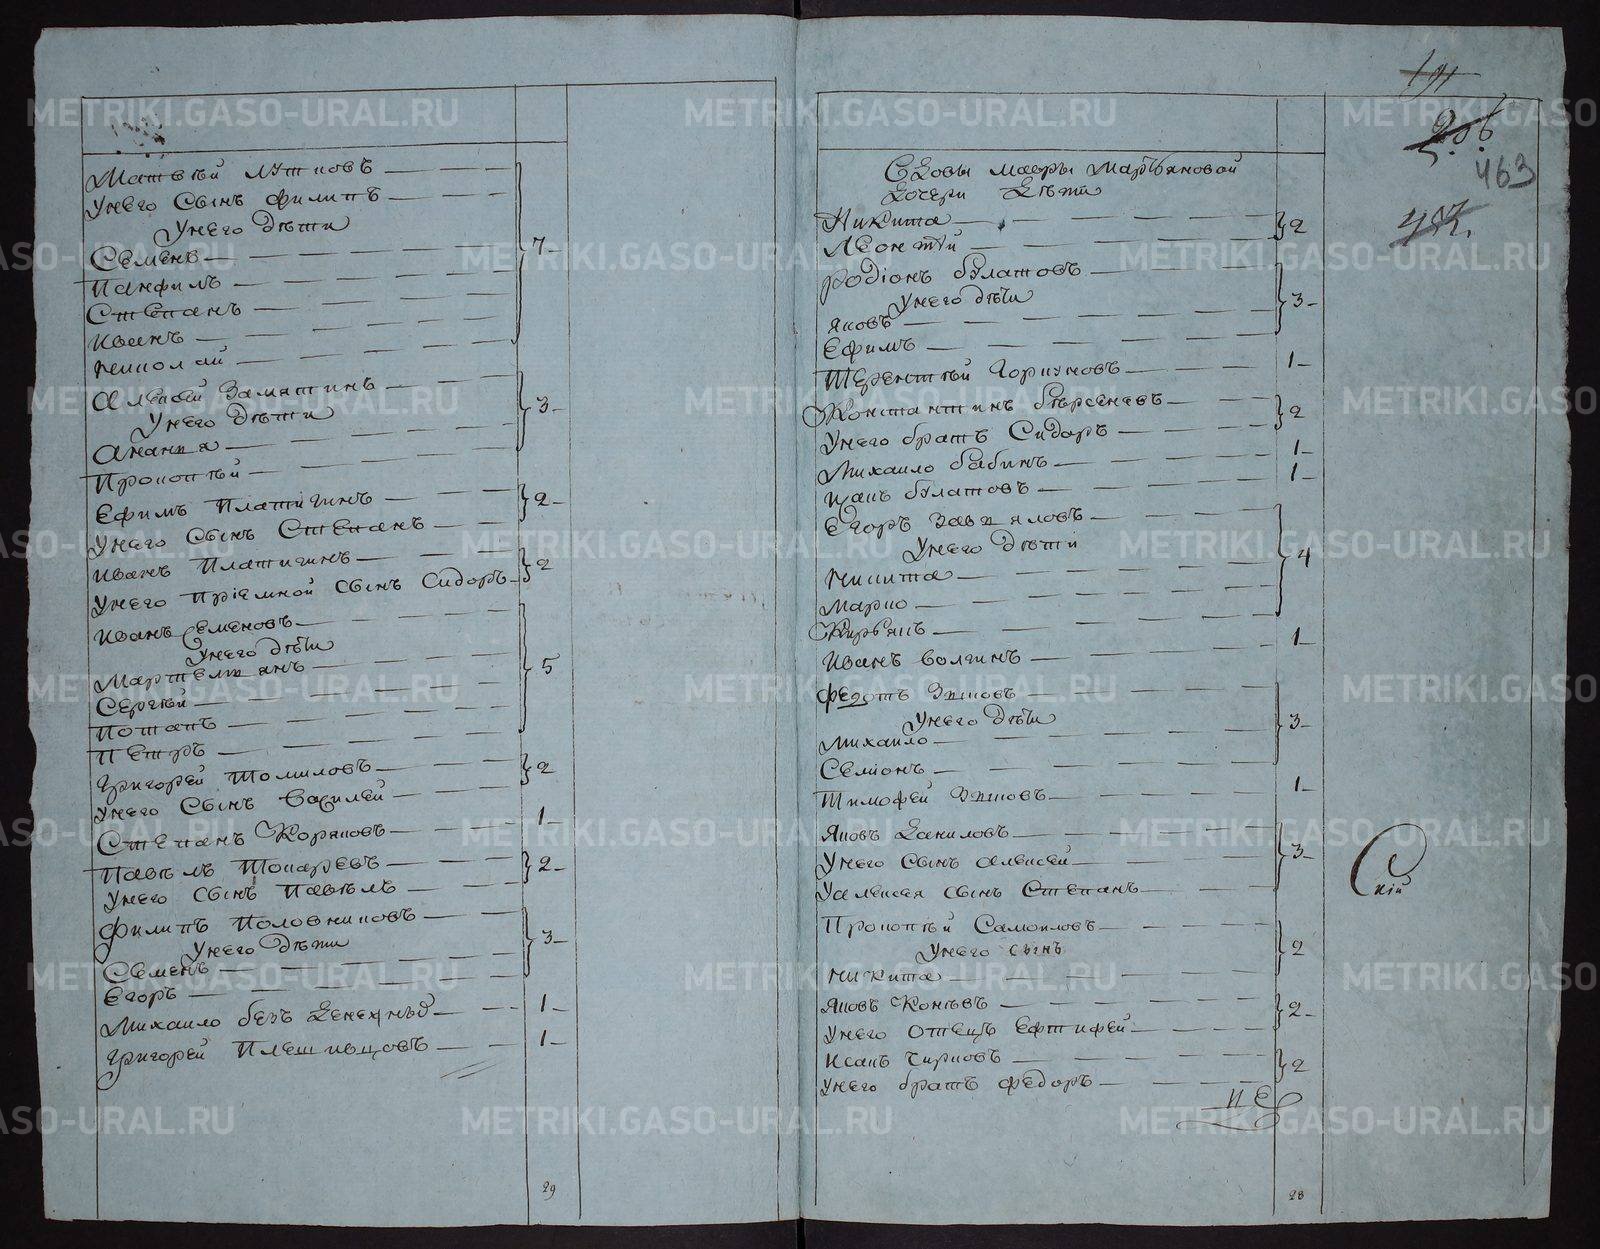 Матвѣй Лутковъ 7
Унего Сынъ Филипъ
Унего Дѣти
Семенъ
Панфилъ
Степанъ
Иванъ
Николай
Алексѣй Замятинъ 3
Унего Дѣти
Ананья
Прокопѣй
Ефимъ Платыгинъ 2
Унего Сынъ Степанъ
Иванъ Платыгинъ 2
Унего Пріемной Сынъ Сидоръ
Иванъ Семеновъ 5
Унего Дѣти
Мартемьянъ
Сергѣй
Потапъ
Петръ
Григорей Томиловъ 2
Унего Сынъ Василей
Степанъ Коряковъ 1
Павелъ Токаревъ 2
Унего Сынъ Павелъ
Филипъ Половниковъ 3
Унего Дѣти
Семенъ
Егоръ
Михаило безъ Денежныхъ 1
Григорей Плешивцовъ 1
29
191
206
463
Вдовы Мавры Мартьяновой
Дочери Дѣти
Никита 2
Леонтѣй
Родіонъ Булатовъ 3
Унего Дѣти
Яковъ
Ефимъ
Терентѣй Горкуновъ 1
Константинъ Берсеневъ 2
Унего братъ Сидоръ
Михаило бабинъ 1
Исакъ булатовъ 1
Егоръ Завьяловъ 4
Унего Дѣти
Никита
Марко
Кирьякъ
Иванъ Волгинъ 1
Федотъ Зыковъ 3
Унего Дѣти
Михаило
Семіонъ
Тимофей Зыковъ 1
Яковъ Даниловъ 3
Унего Сынъ Алексей
Уалексея Сынъ Степанъ
Прокопѣй Самоиловъ 2
Унего Сынъ
Никита
Яковъ Коневъ 2
Унего Отецъ Ефтифей
Исакъ Чирковъ 2
Унего братъ Федоръ
28
Скій
METRIKI.GASO-URAL.RU